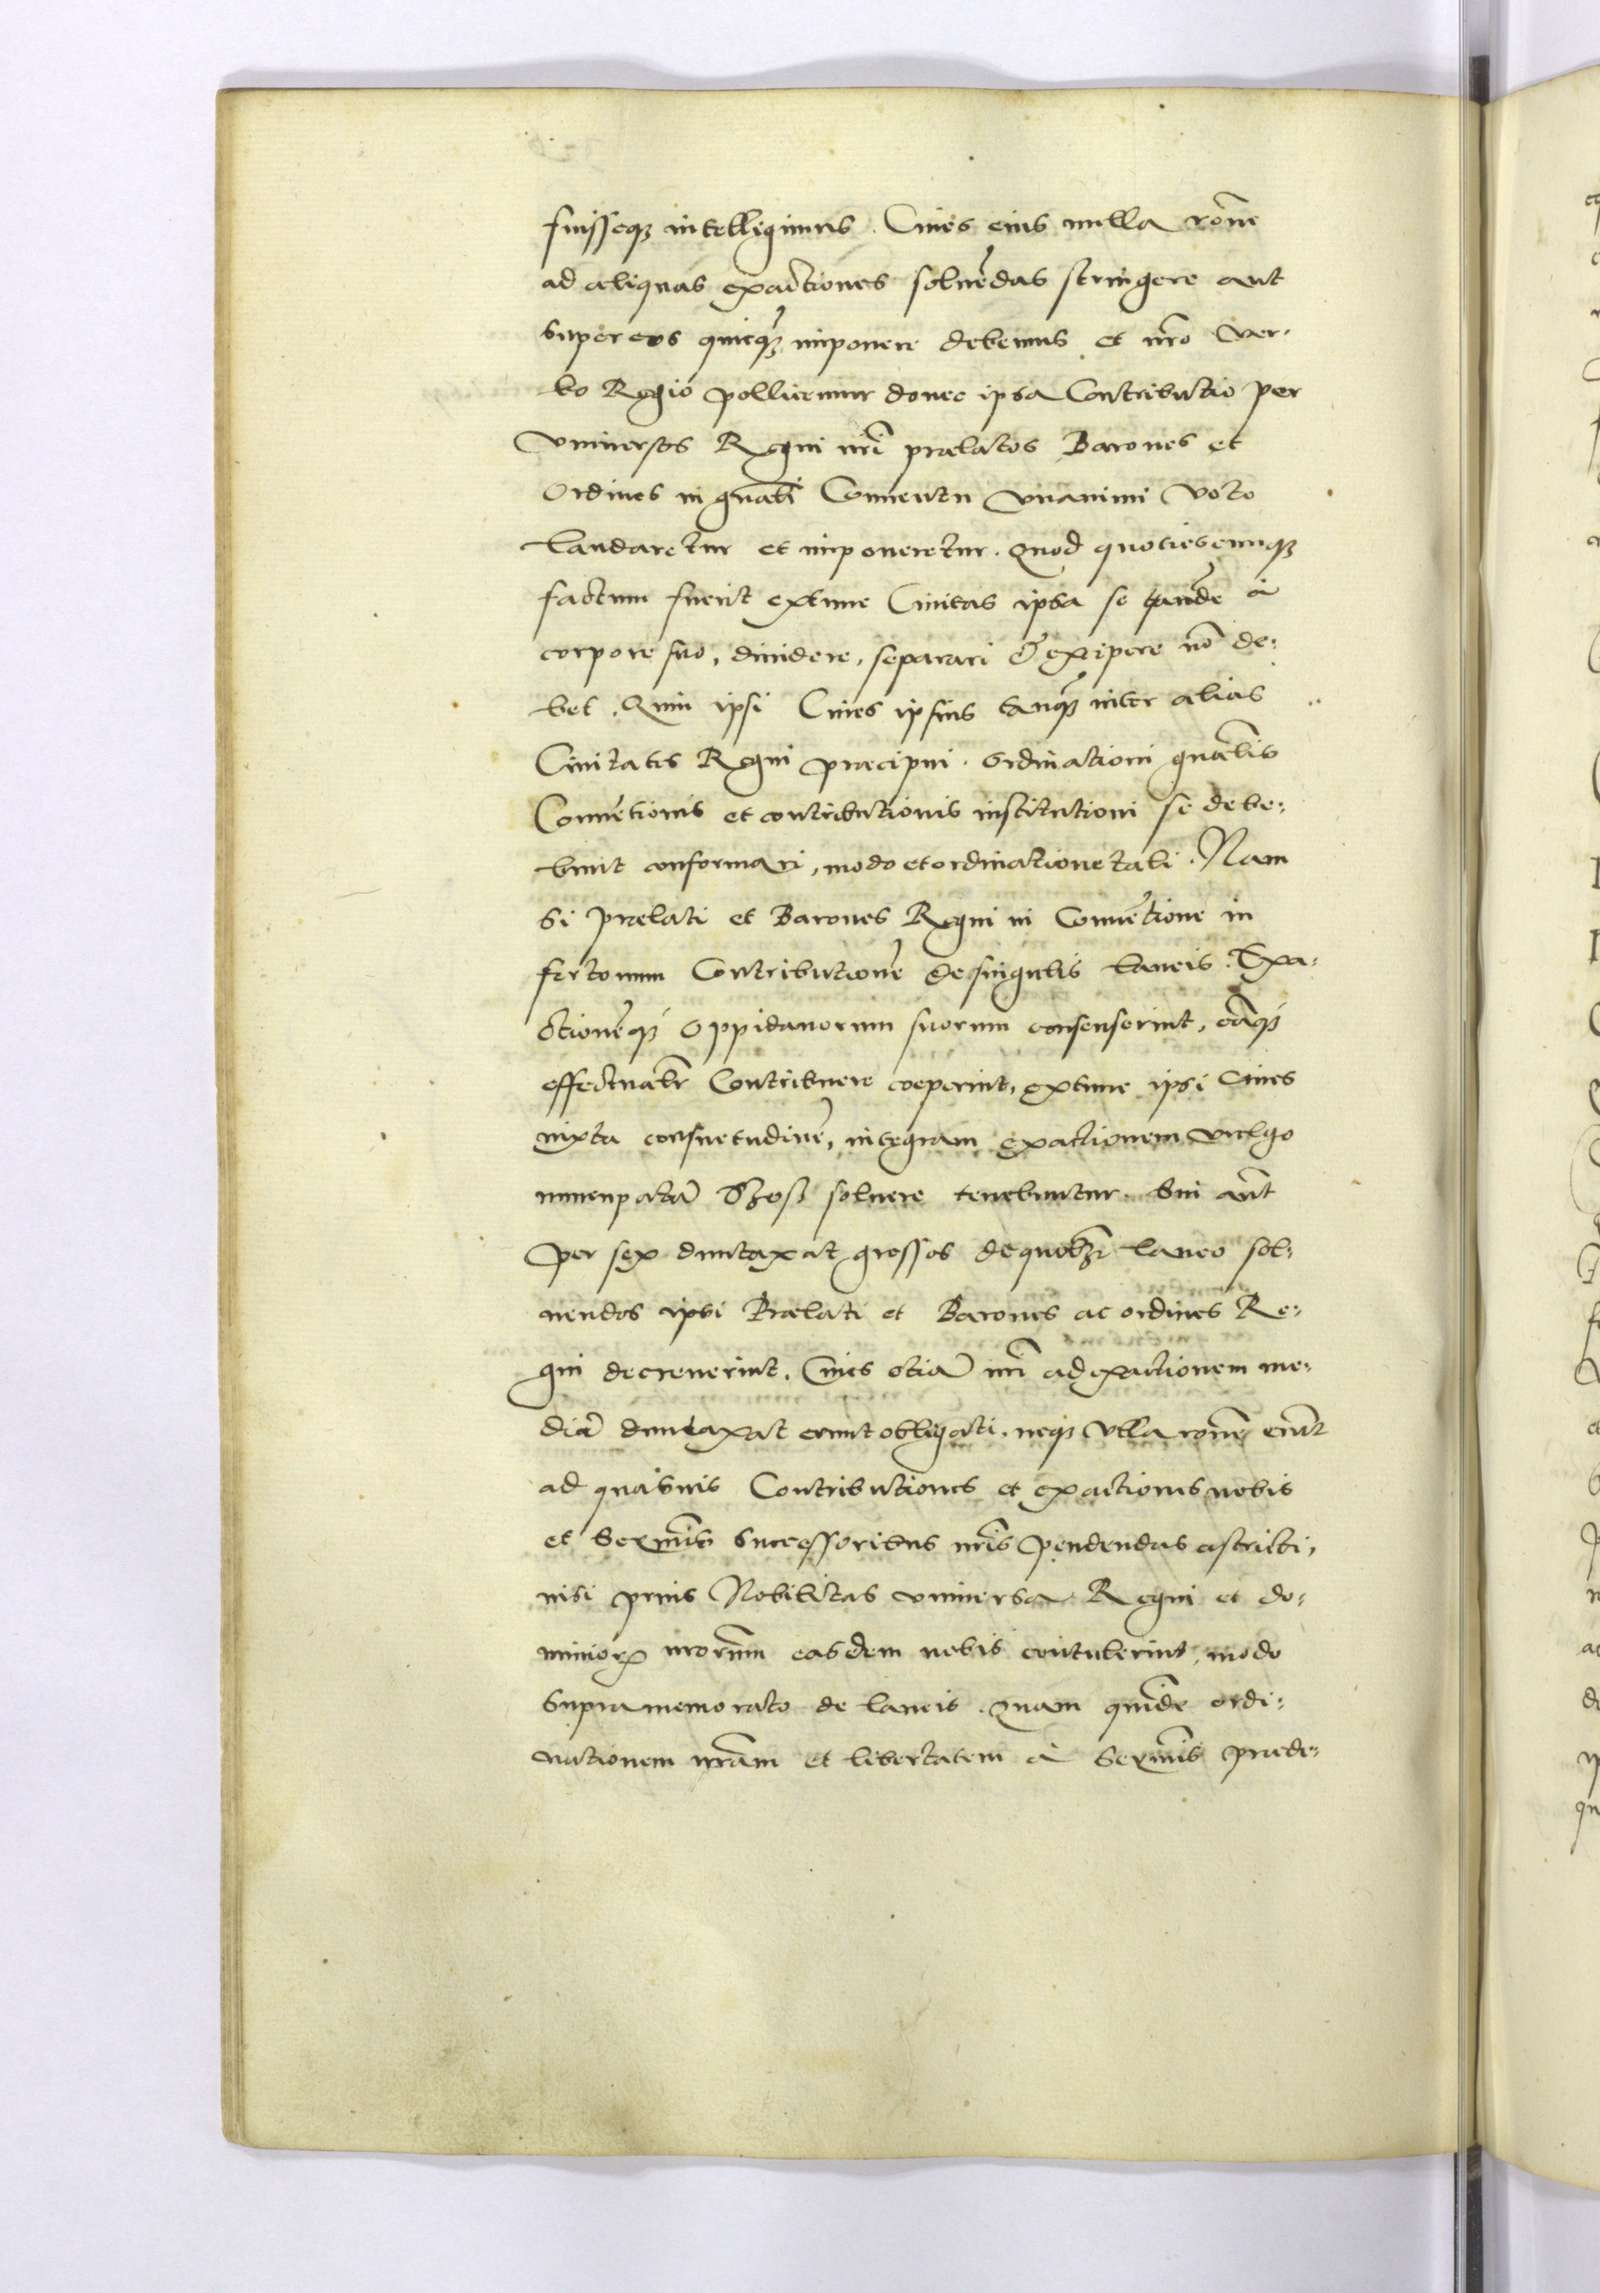 fuisseq3 intelligimus. Ciues eius nulla rõne
ad aliquas exactiones soluẽdas stringere aut
super eos quicq3 imponere debemus et nro̅ ver-
bo Regio pollicemur donec ipsa Contributio per
vniuersos Regni nri̅ prælatos Barones et
Ordines in gn̅ali Conuentu vnanimi voto
laudaretur et imponeretur. Quod quotiescunq3
factum fuerit extunc Ciuitas ipsa se eande̅ à
corpore suo, diuidere, separari & excipere nõ de:
bet. Quin ipsi Ciues ipsius tanq3 inter alias
Ciuitates Regni præcipui. ordinationi gn̅alis
Conuẽtionis et contributionis institutioni se debe:
bunt conformari, modo et ordinatione tali. Nam
si prælati et Barones Regni in Conuẽtione in
fertonum Contributionẽ de singulis laneis. Exa:
ctionẽq3 Oppidanorum suorum consenserint, eãq3
effectualr̅ Contribuere coeperint, extunc ipsi Ciues
iuxta consuetudinẽ, integram exactionem vulgo
nuncupatã Szosz soluere tenebuntur. Sin aũt
per sex duntaxat grossos de quolz̅ laneo sol:
uendos ipsi Prælati et Barones ac ordines Re:
gni decreuerint. Ciues etiã nri̅ ad exactionem me:
diã duntaxat erunt obligati. neq3 vlla rone̅ erũt
ad quasuis Contributiones et exactiones nobis
et Serm̅is Successoribus nr̅is pendendas astricti,
nisi prius Nobilitas vniuersa Regni et do:
miniorꝝ nrorum̅ easdem nobis contulerint, modo
supramemorato de laneis. Quam quide̅ ordi:
nationem nr̅am et libertatem à Serm̅is præde: